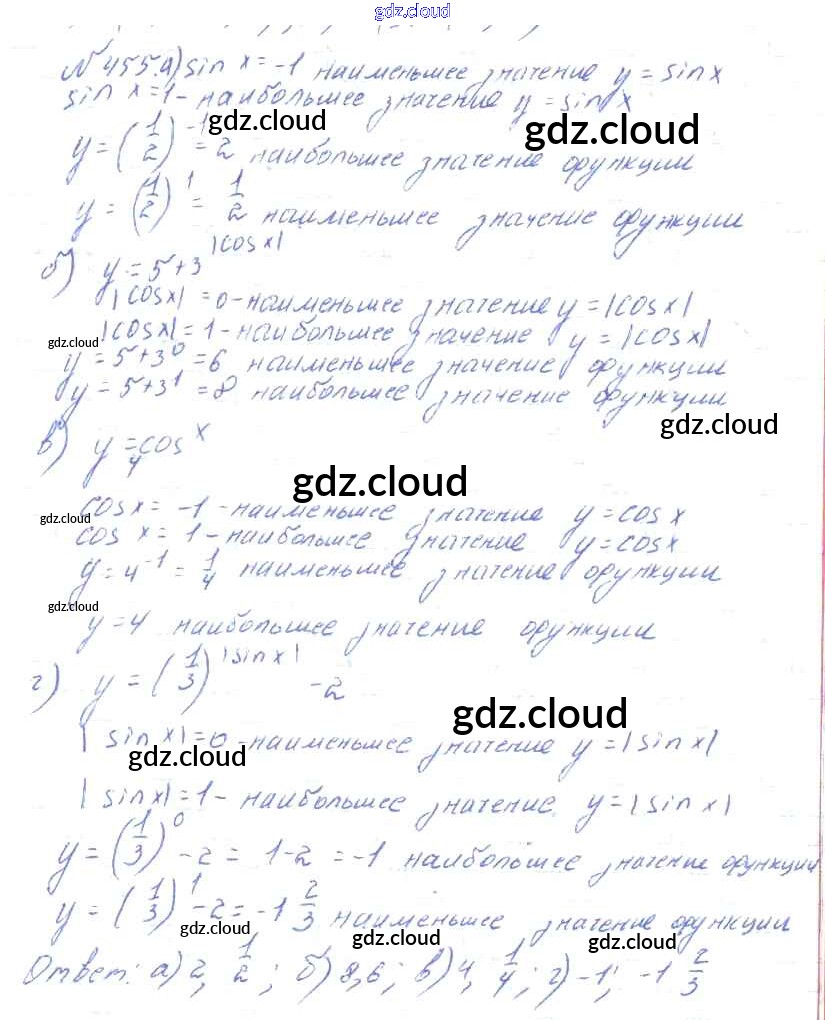 gdz.cloud
№ 455. а) sin x = -1 наименьшее значение y = sin x
sin x = 1 - наибольшее значение y = sin x
gdz.cloud
gdz.cloud
y = (1/2)^-1 = 2 наибольшее значение функции
y = (1/2)^1 = 1/2 наименьшее значение функции
б) y = 5 + 3^|cos x|
|cos x| = 0 - наименьшее значение y = |cos x|
|cos x| = 1 - наибольшее значение y = |cos x|
gdz.cloud
y = 5 + 3^0 = 6 наименьшее значение функции
y = 5 + 3^1 = 8 наибольшее значение функции
gdz.cloud
в) y = 4^cos x
gdz.cloud
cos x = -1 - наименьшее значение y = cos x
gdz.cloud
cos x = 1 - наибольшее значение y = cos x
y = 4^-1 = 1/4 наименьшее значение функции
gdz.cloud
y = 4 наибольшее значение функции
г) y = (1/3)^|sin x| - 2
gdz.cloud
|sin x| = 0 - наименьшее значение y = |sin x|
gdz.cloud
|sin x| = 1 - наибольшее значение y = |sin x|
y = (1/3)^0 - 2 = 1 - 2 = -1 наибольшее значение функции
y = (1/3)^1 - 2 = -1 2/3 наименьшее значение функции
gdz.cloud
gdz.cloud
gdz.cloud
Ответ: а) 2, 1/2; б) 8, 6; в) 4, 1/4; г) -1; -1 2/3